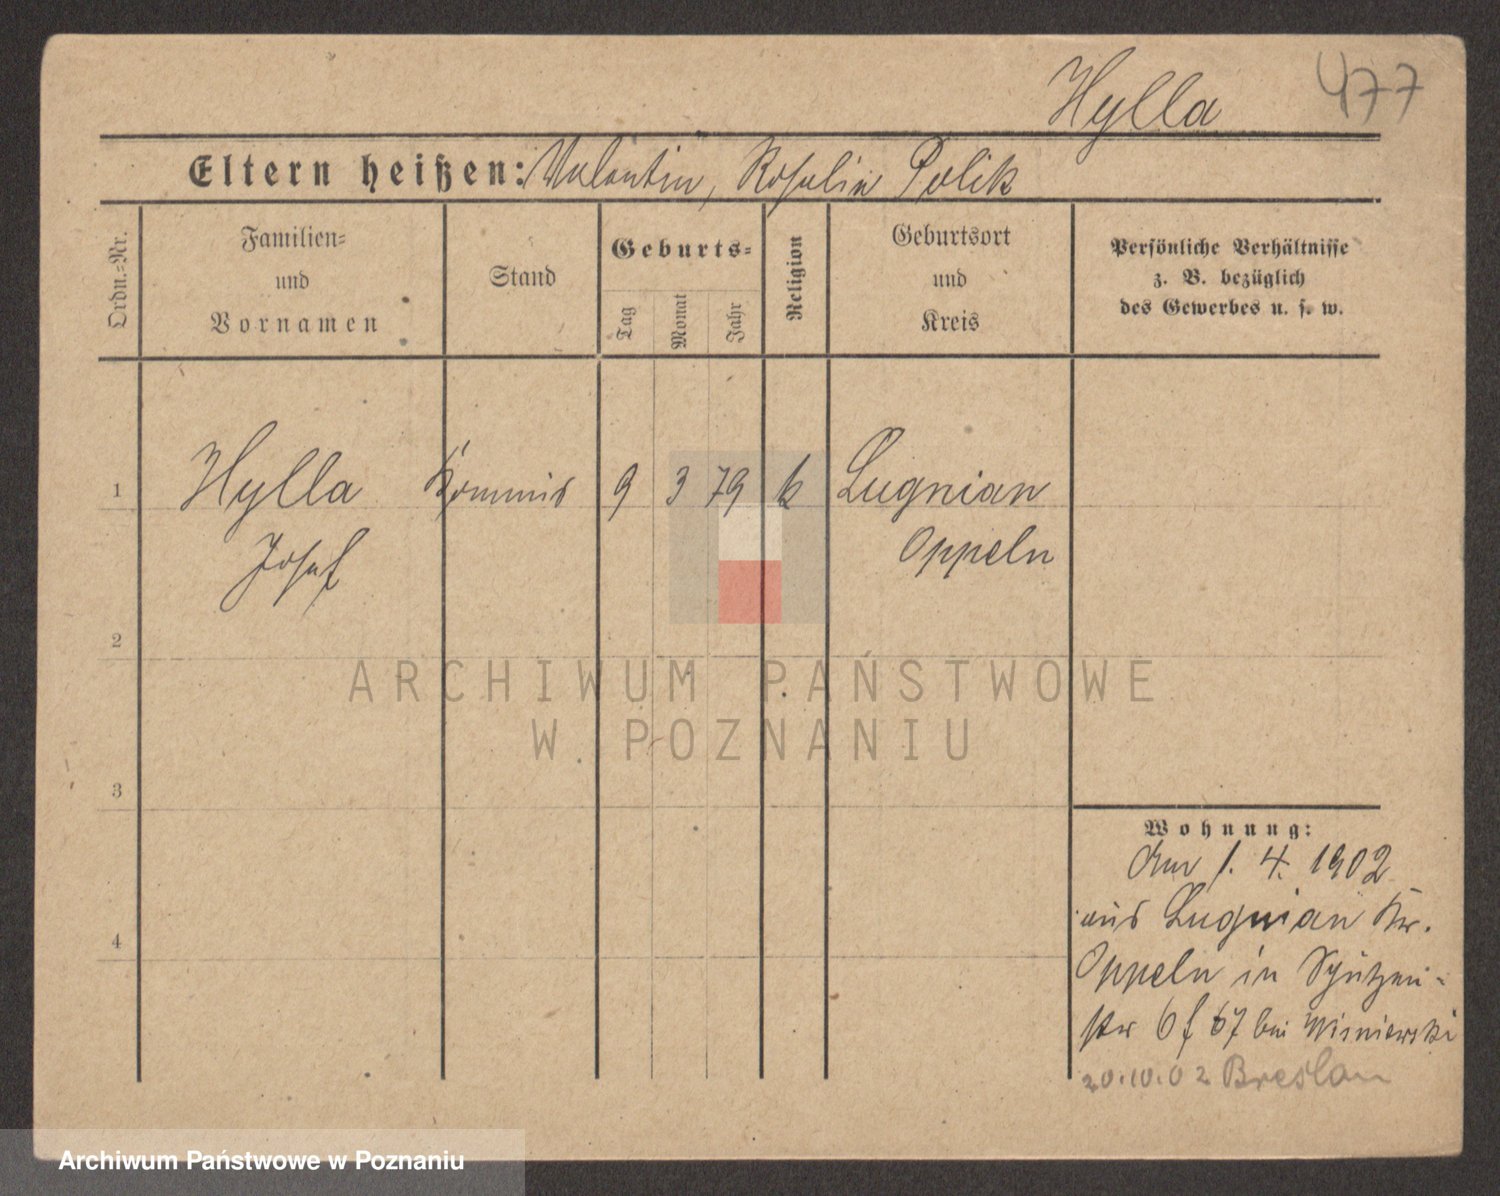 Hylla 477
Eltern heißen: Valentin, Rosalie Polik
Ordn.=Nr.
Familien=
und
Vornamen
Stand
Geburts=
Tag
Monat
Jahr
Religion
Geburtsort
und
Kreis
Persönliche Verhältnisse
z. B. bezüglich
des Gewerbes u. s. w.
1 Hylla Kommis 9 3 79 k Lugnian
Josef Oppeln
2
3
4
ARCHIWUM PAŃSTWOWE
W POZNANIU
Wohnung:
Am 1. 4. 1902
aus Lugnian Kr.
Oppeln in Schützen-
str 6 f 67 bei Wisniewski
20.10.02 Breslau
Archiwum Państwowe w Poznaniu